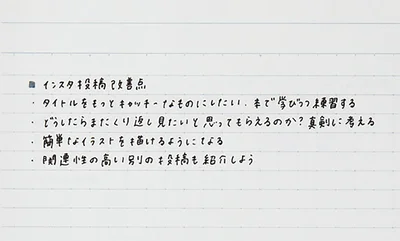 ■ インスタ投稿改善点
・タイトルをもっとキャッチーなものにしたい。まで学びつつ練習する
・どうしたらまたくり返し見たいと思ってもらえるのか？真剣に考える
・簡単なイラストを描けるようになる
・関連性の高い別の投稿も紹介しよう